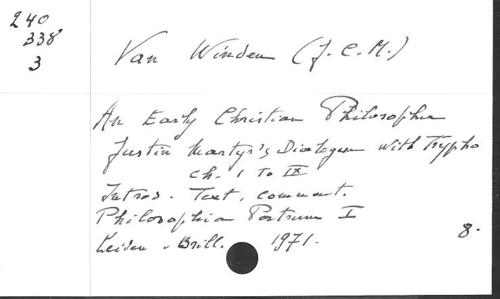 240
338
3
Van Winden (J. C. M.)
An Early Christian Philosopher
Justin Martyr's Dialogue with Trypho
ch. 1 to IX
Introd. Text, comment.
Philosophia Patrum I
Leiden - Brill. 1971. 8.